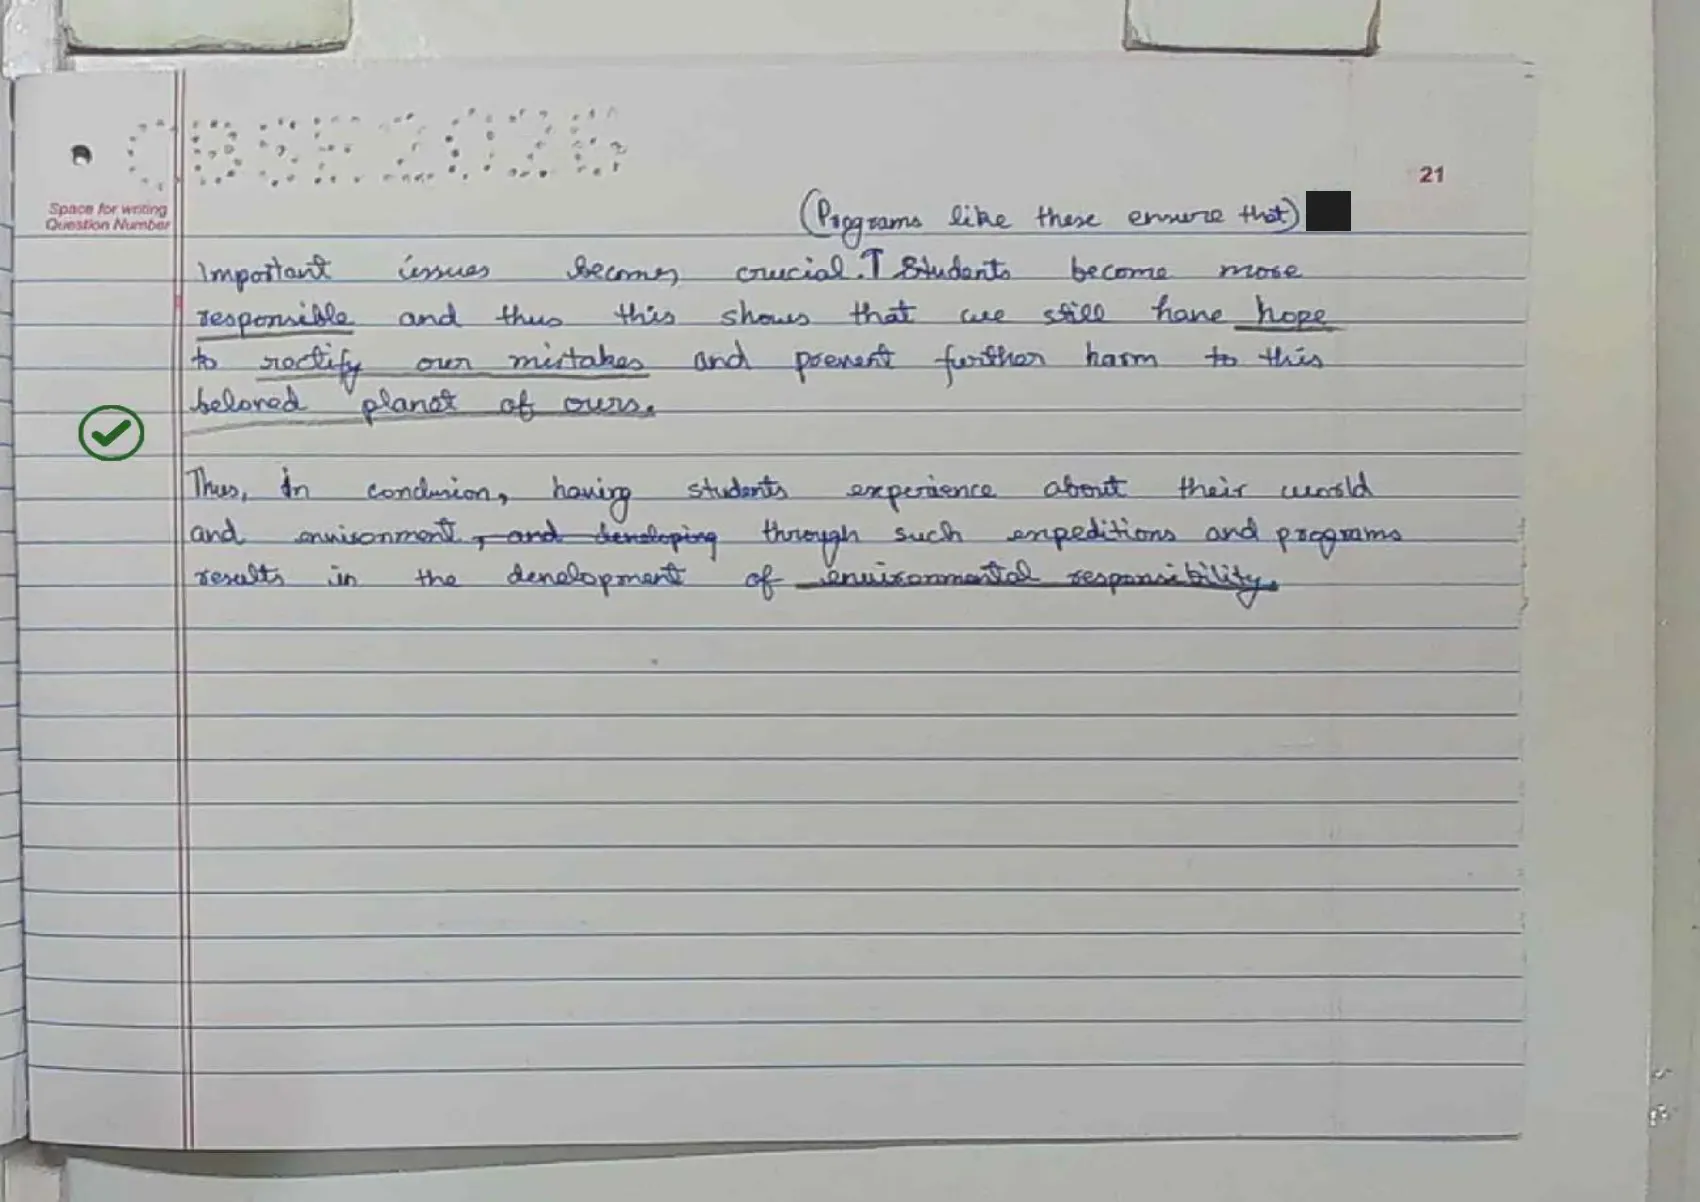 CBSE2026
21
Space for writing
Question Number
(Programs like these ensure that)
Important issues becomes crucial. ↑ Students become more
responsible and thus this shows that we still have hope
to rectify our mistakes and prevent further harm to this
beloved planet of ours.
Thus, in conclusion, having students experience about their world
and environment, and developing through such expeditions and programs
results in the development of environmental responsibility.